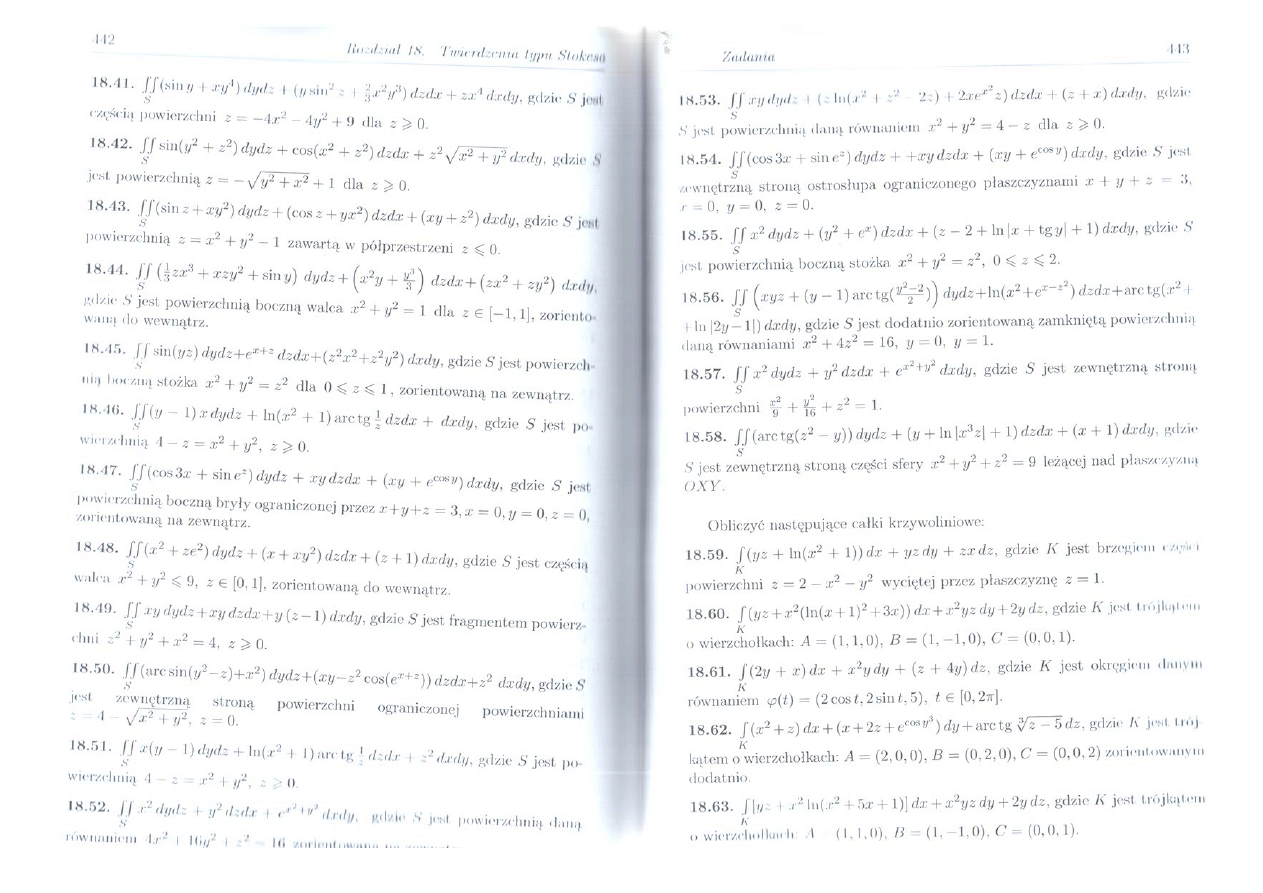 442
Rozdział 18. Twierdzenia typu Stokesa
18.41. ∬(sin y + xy⁴) dydz + (y sin² z + ⅔x²y³) dzdx + zx⁴ dxdy, gdzie S jest
S
częścią powierzchni z = −4x² − 4y² + 9 dla z ⩾ 0.
18.42. ∬ sin(y² + z²) dydz + cos(x² + z²) dzdx + z²√(x² + y²) dxdy, gdzie S
S
jest powierzchnią z = −√(y² + x²) + 1 dla z ⩾ 0.
18.43. ∬(sin z + xy²) dydz + (cos z + yx²) dzdx + (xy + z²) dxdy, gdzie S jest
S
powierzchnią z = x² + y² − 1 zawartą w półprzestrzeni z ⩽ 0.
18.44. ∬ (⅓zx³ + xzy² + sin y) dydz + (x²y + y³/3) dzdx + (zx² + zy²) dxdy,
S
gdzie S jest powierzchnią boczną walca x² + y² = 1 dla z ∈ [−1, 1], zoriento-
waną do wewnątrz.
18.45. ∬ sin(yz) dydz+eˣ⁺ᶻ dzdx+(z²x²+z²y²) dxdy, gdzie S jest powierzch-
S
nią boczną stożka x² + y² = z² dla 0 ⩽ z ⩽ 1, zorientowaną na zewnątrz.
18.46. ∬(y − 1) x dydz + ln(x² + 1) arc tg 1/z dzdx + dxdy, gdzie S jest po-
S
wierzchnią 4 − z = x² + y², z ⩾ 0.
18.47. ∬(cos 3x + sin eᶻ) dydz + xy dzdx + (xy + e^(cos y)) dxdy, gdzie S jest
S
powierzchnią boczną bryły ograniczonej przez x+y+z = 3, x = 0, y = 0, z = 0,
zorientowaną na zewnątrz.
18.48. ∬(x² + ze²) dydz + (x + xy²) dzdx + (z + 1) dxdy, gdzie S jest częścią
S
walca x² + y² ⩽ 9, z ∈ [0, 1], zorientowaną do wewnątrz.
18.49. ∬ xy dydz + xy dzdx + y (z − 1) dxdy, gdzie S jest fragmentem powierz-
S
chni z² + y² + x² = 4, z ⩾ 0.
18.50. ∬(arc sin(y²−z)+x²) dydz+(xy−z² cos(eˣ⁺ᶻ)) dzdx+z² dxdy, gdzie S
S
jest zewnętrzną stroną powierzchni ograniczonej powierzchniami
z = 4 − √(x² + y²), z = 0.
18.51. ∬ x(y − 1) dydz + ln(x² + 1) arc tg 1/z dzdx + z² dxdy, gdzie S jest po-
S
wierzchnią 4 − z = x² + y², z ⩾ 0.
18.52. ∬ x² dydz + y² dzdx + e^(x²+y²) dxdy, gdzie S jest powierzchnią daną
S
równaniem 4x² + 16y² + z² = 16
Zadania
443
18.53. ∬ xy dydz + (z ln(x² + z² − 2z) + 2xe^(x²)z) dzdx + (z + x) dxdy, gdzie
S
S jest powierzchnią daną równaniem x² + y² = 4 − z dla z ⩾ 0.
18.54. ∬(cos 3x + sin eᶻ) dydz + +xy dzdx + (xy + e^(cos y)) dxdy, gdzie S jest
S
zewnętrzną stroną ostrosłupa ograniczonego płaszczyznami x + y + z = 3,
x = 0, y = 0, z = 0.
18.55. ∬ x² dydz + (y² + eˣ) dzdx + (z − 2 + ln |x + tg y| + 1) dxdy, gdzie S
S
jest powierzchnią boczną stożka x² + y² = z², 0 ⩽ z ⩽ 2.
18.56. ∬ (xyz + (y − 1) arc tg((y²−2)/2)) dydz+ln(x²+e^(x−z²)) dzdx+arc tg(x²+
S
+ ln |2y − 1|) dxdy, gdzie S jest dodatnio zorientowaną zamkniętą powierzchnią
daną równaniami x² + 4z² = 16, y = 0, y = 1.
18.57. ∬ x² dydz + y² dzdx + e^(x²+y²) dxdy, gdzie S jest zewnętrzną stroną
S
powierzchni x²/9 + y²/16 + z² = 1.
18.58. ∬(arc tg(z² − y)) dydz + (y + ln |x³z| + 1) dzdx + (x + 1) dxdy, gdzie
S
S jest zewnętrzną stroną części sfery x² + y² + z² = 9 leżącej nad płaszczyzną
OXY.
Obliczyć następujące całki krzywoliniowe:
18.59. ∫(yz + ln(x² + 1)) dx + yz dy + zx dz, gdzie K jest brzegiem części
K
powierzchni z = 2 − x² − y² wyciętej przez płaszczyznę z = 1.
18.60. ∫(yz+x²(ln(x+1)²+3x)) dx+x²yz dy+2y dz, gdzie K jest trójkątem
K
o wierzchołkach: A = (1, 1, 0), B = (1, −1, 0), C = (0, 0, 1).
18.61. ∫(2y + x) dx + x²y dy + (z + 4y) dz, gdzie K jest okręgiem danym
K
równaniem φ(t) = (2 cos t, 2 sin t, 5), t ∈ [0, 2π].
18.62. ∫(x²+z) dx+(x+2z+e^(cos y³)) dy+arc tg ∛(z − 5) dz, gdzie K jest trój-
K
kątem o wierzchołkach: A = (2, 0, 0), B = (0, 2, 0), C = (0, 0, 2) zorientowanym
dodatnio.
18.63. ∫[yz + x² ln(x² + 5x + 1)] dx + x²yz dy + 2y dz, gdzie K jest trójkątem
K
o wierzchołkach: A = (1, 1, 0), B = (1, −1, 0), C = (0, 0, 1).